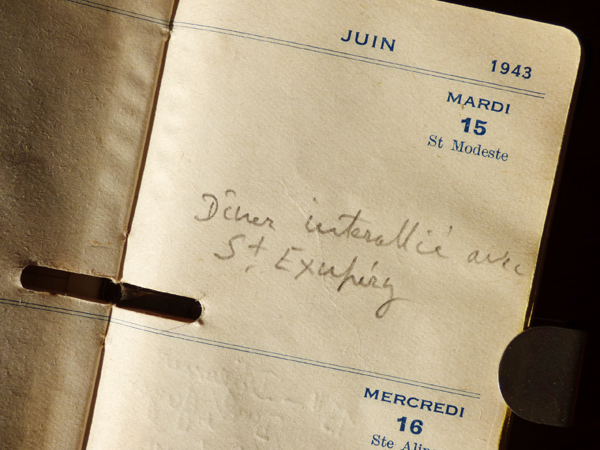 JUIN
1943
MARDI
15
St Modeste
Dîner interallié avec
St. Exupéry
MERCREDI
16
Ste